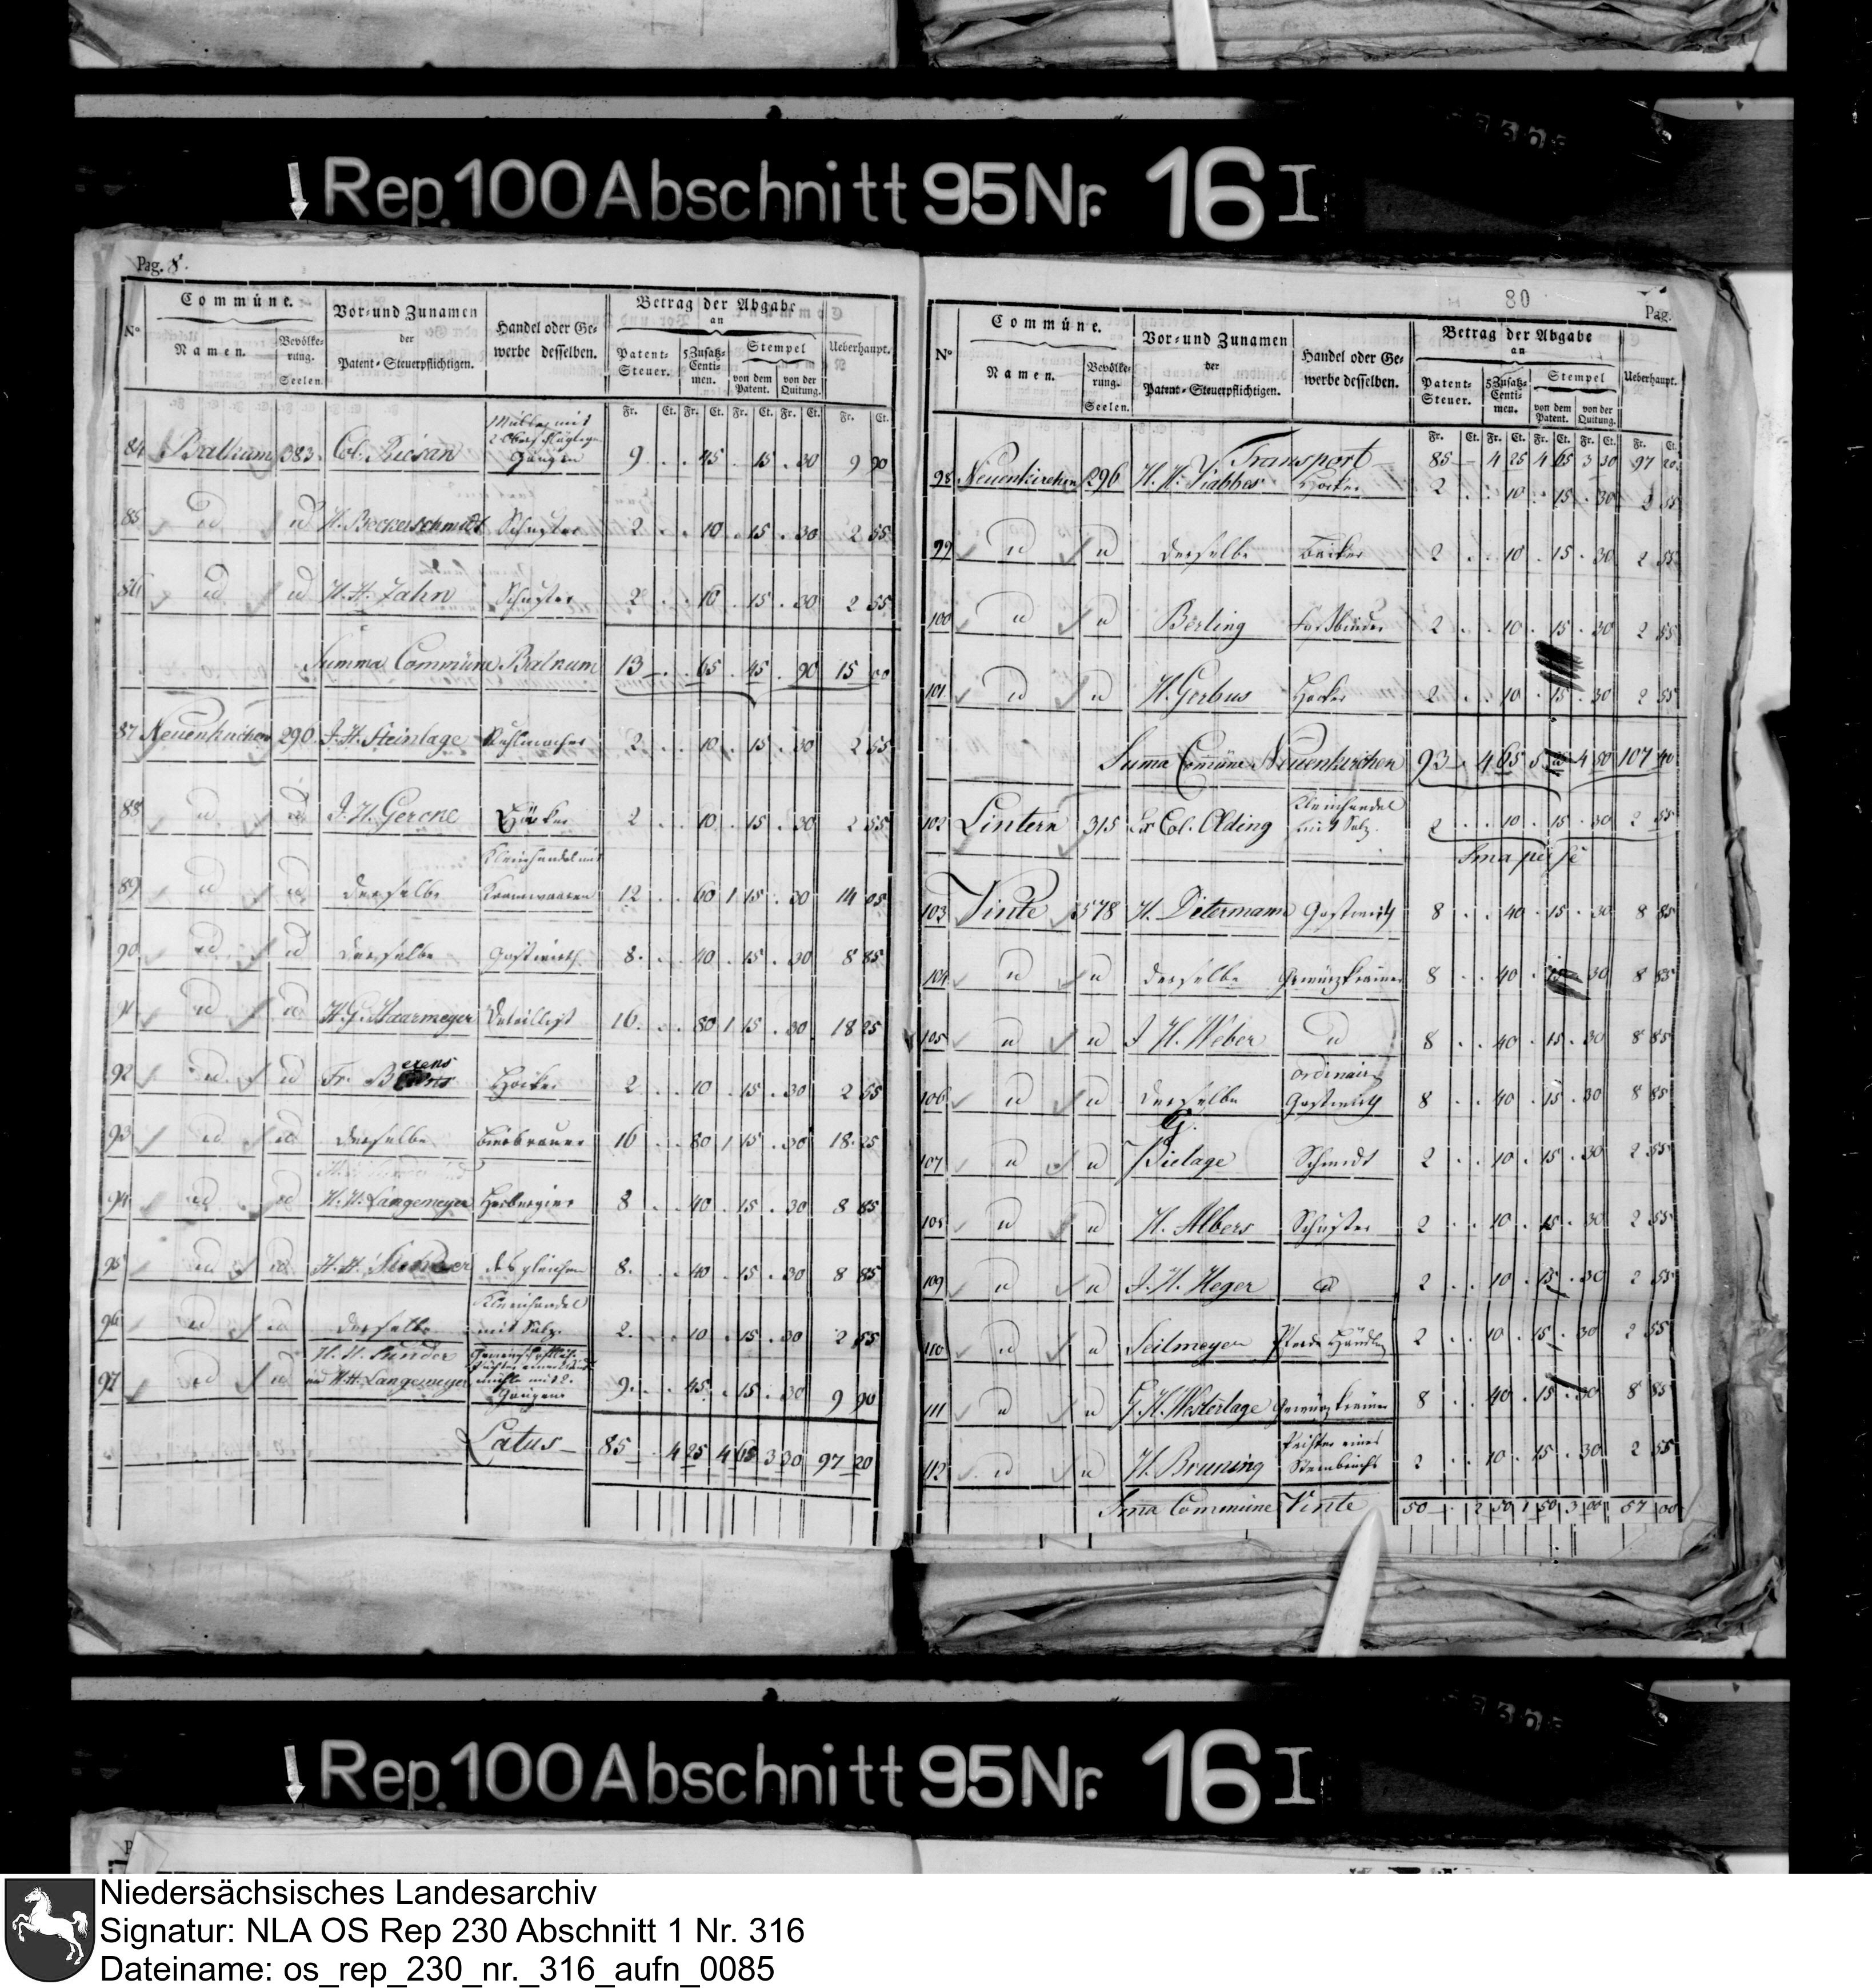 Rep. 100 Abschnitt 95 Nr. 16 I
Pag. 8.
Commúne. Vor- und Zunamen der Patent-Steuerpflichtigen. Handel oder Gewerbe desselben. Betrag der Abgabe an Ueberhaupt.
N° Namen. Bevölkerung. Seelen. Patent-Steuer. 5 Zusatz-Centimen. Stempel von dem Patent. von der Quitung.
Fr. Ct. Fr. Ct. Fr. Ct. Fr. Ct. Fr. Ct.
84 Balkum 383 Col. 9 . . 45 . 15 . 30 9 90
85 id id H. Beckerschmidt Schuster 2 . . 10 . 15 . 30 2 55
86 id id H. H. Jahn Schuster 2 . . 10 . 15 . 30 2 55
Summa Commúne Balkum 13 — . 65 . 45 . 90 15 00
87 Neuenkirchen 290 J. H. Steinlage 2 . . 10 . 15 . 30 2 55
88 id id J. H. Gercke Höcker 2 . . 10 . 15 . 30 2 55
Kleinhandel mit
89 id id derselbe Kramwaaren 12 . . 60 1 15 . 30 14 05
90 id id derselbe Gastwirth 8 . . 40 . 15 . 30 8 85
91 id id H. G. Haarmeyer Detaillist 16 . . 80 1 15 . 30 18 25
92 id id Fr. Berens Höcker 2 . . 10 . 15 . 30 2 55
93 id id derselbe Bierbrauer 16 . . 80 1 15 . 30 18 25
94 id id H. H. Langemeyer Herbergier 8 . . 40 . 15 . 30 8 85
95 id id H. H. desgleichen 8 . . 40 . 15 . 30 8 85
Kleinhandel
96 id id derselbe mit Salz. 2 . . 10 . 15 . 30 2 55
97 id id und H. H. Langemeyer 9 . . 45 . 15 . 30 9 90
Latus — 85 . 4 25 4 65 3 30 97 20
80
Pag.
Commúne. Vor- und Zunamen der Patent-Steuerpflichtigen. Handel oder Gewerbe desselben. Betrag der Abgabe an Ueberhaupt.
N° Namen. Bevölkerung. Seelen. Patent-Steuer. 5 Zusatz-Centimen. Stempel von dem Patent. von der Quitung.
Fr. Ct. Fr. Ct. Fr. Ct. Fr. Ct. Fr. Ct.
Transport — 85 — 4 25 4 65 3 30 97 20
98 Neuenkirchen 296 H. H. Höcker 2 . . 10 . 15 . 30 2 55
99 id id derselbe Becker 2 . . 10 . 15 . 30 2 55
100 id id Berling Faßbinder 2 . . 10 . 15 . 30 2 55
101 id id H. Gerbus Hocker 2 . . 10 . 15 . 30 2 55
Suma Comúne Neuenkirchen 93 . 4 65 5 4 50 107 40
102 Lintern 315 Col. Olding Kleinhandel mit Salz. 2 . . 10 . 15 . 30 2 55
Sma per se
103 Vinte 578 H. Determann Gastwirth 8 . . 40 . 15 . 30 8 85
104 id id derselbe Gewürzkrämer 8 . . 40 . 15 . 30 8 85
105 id id J H. Weber id 8 . . 40 . 15 . 30 8 85
106 id id derselbe ordinair Gastwirth 8 . . 40 . 15 . 30 8 85
107 id id G. Pielage Schmidt 2 . . 10 . 15 . 30 2 55
108 id id H. Albers Schuster 2 . . 10 . 15 . 30 2 55
109 id id J. H. Heger id 2 . . 10 . 15 . 30 2 55
110 id id Seilmeyer Pferde Händler 2 . . 10 . 15 . 30 2 55
111 id id G. H. Westerlage Gewürzkrämer 8 . . 40 . 15 . 30 8 85
112 id id H. Bruning eines Steinbruchs 2 . . 10 . 15 . 30 2 55
Sma Commúne Vinte 50 — . 2 50 1 50 3 00 57 00
Rep. 100 Abschnitt 95 Nr. 16 I
Niedersächsisches Landesarchiv
Signatur: NLA OS Rep 230 Abschnitt 1 Nr. 316
Dateiname: os_rep_230_nr._316_aufn_0085